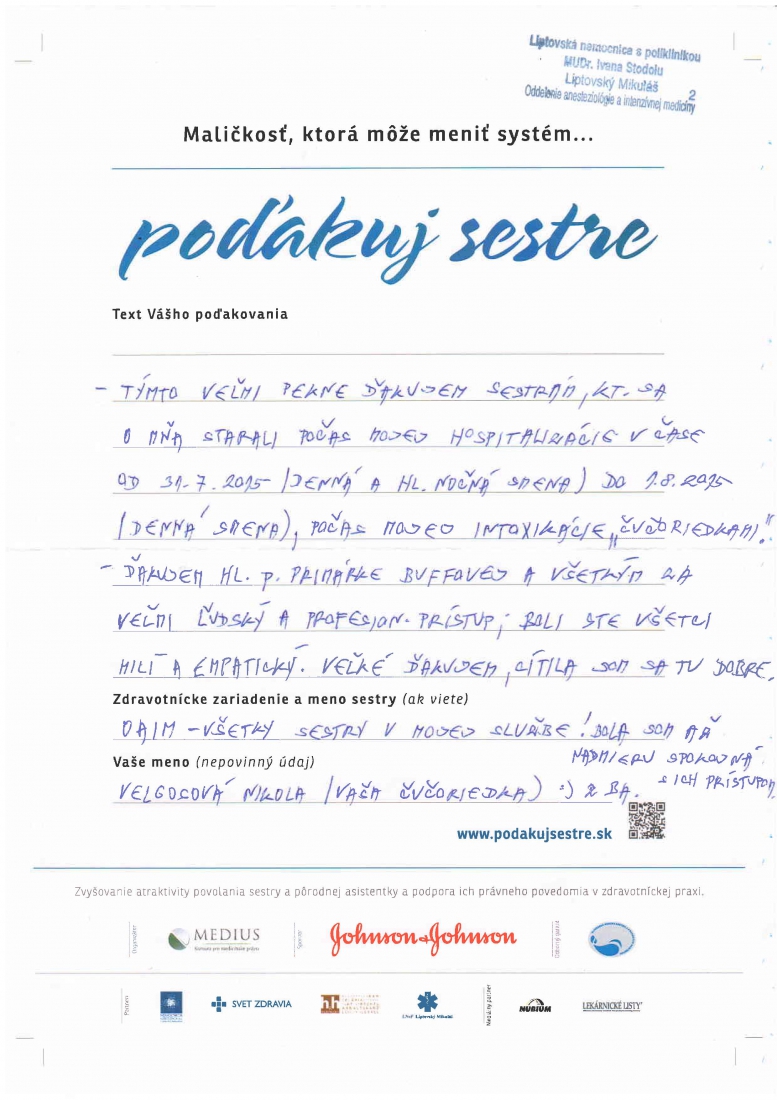 Liptovská nemocnica s poliklinikou
MUDr. Ivana Stodolu
Liptovský Mikuláš
2
Oddelenie anesteziológie a intenzívnej medicíny
Maličkosť, ktorá môže meniť systém...
poďakuj sestre
Text Vášho poďakovania
- TÝMTO VEĽMI PEKNE ĎAKUJEM SESTRÁM, KT. SA
O MŇA STARALI POČAS MOJEJ HOSPITALIZÁCIE V ČASE
OD 31.7.2015 /DENNÁ A HL. NOČNÁ SMENA) DO 1.8.2015
/DENNÁ SMENA), POČAS MOJEJ INTOXIKÁCIE „ČUČORIEDKAMI."
- ĎAKUJEM HL. p. PRIMÁRKE BUFFOVEJ A VŠETKÝM ZA
VEĽMI ĽUDSKÝ A PROFESION. PRÍSTUP, BOLI STE VŠETCI
MILÍ A EMPATICKÝ. VEĽKÉ ĎAKUJEM, CÍTILA SOM SA TU DOBRE.
Zdravotnícke zariadenie a meno sestry (ak viete)
OAIM - VŠETKY SESTRY V MOJEJ SLUŽBE! BOLA SOM AŽ
NADMIERU SPOKOJNÁ
S ICH PRÍSTUPOM
Vaše meno (nepovinný údaj)
VELGOSOVÁ NIKOLA /VAŠA ČUČORIEDKA) :) Z BA.
www.podakujsestre.sk
Zvyšovanie atraktivity povolania sestry a pôrodnej asistentky a podpora ich právneho povedomia v zdravotníckej praxi.
Organizátor
MEDIUS
Sponzor
Johnson & Johnson
Odborný garant
Partneri
SVET ZDRAVIA
hh
LNsP Liptovský Mikuláš
Mediálny partner
NUBIUM
LEKÁRNICKÉ LISTY